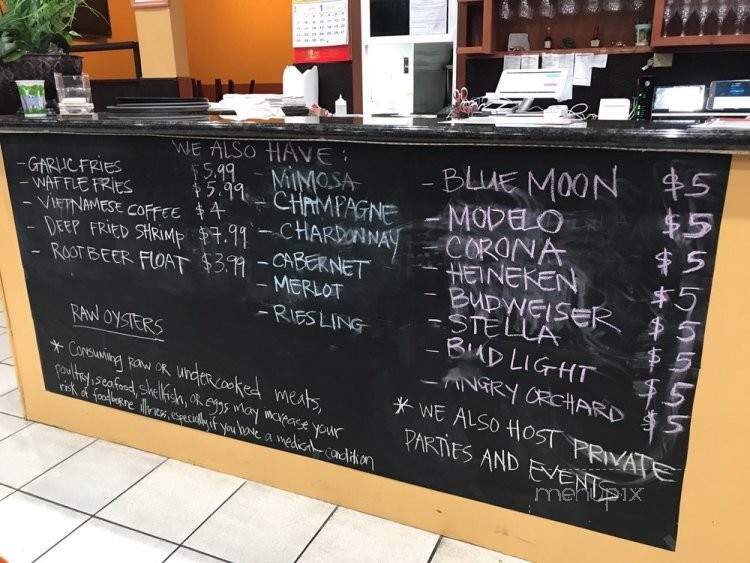 WE ALSO HAVE :
- GARLIC FRIES $5.99
- WAFFLE FRIES $5.99
- VIETNAMESE COFFEE $4
- DEEP FRIED SHRIMP $7.99
- ROOTBEER FLOAT $3.99
RAW OYSTERS
* Consuming raw or undercooked meats,
poultry, seafood, shellfish, or eggs may increase your
risk of foodborne illness, especially if you have a medical condition
- MIMOSA
- CHAMPAGNE
- CHARDONNAY
- CABERNET
- MERLOT
- RIESLING
- BLUE MOON $5
- MODELO $5
- CORONA $5
- HEINEKEN $5
- BUDWEISER $5
- STELLA $5
- BUD LIGHT $5
- ANGRY ORCHARD $5
* WE ALSO HOST PRIVATE
PARTIES AND EVENTS
menupix